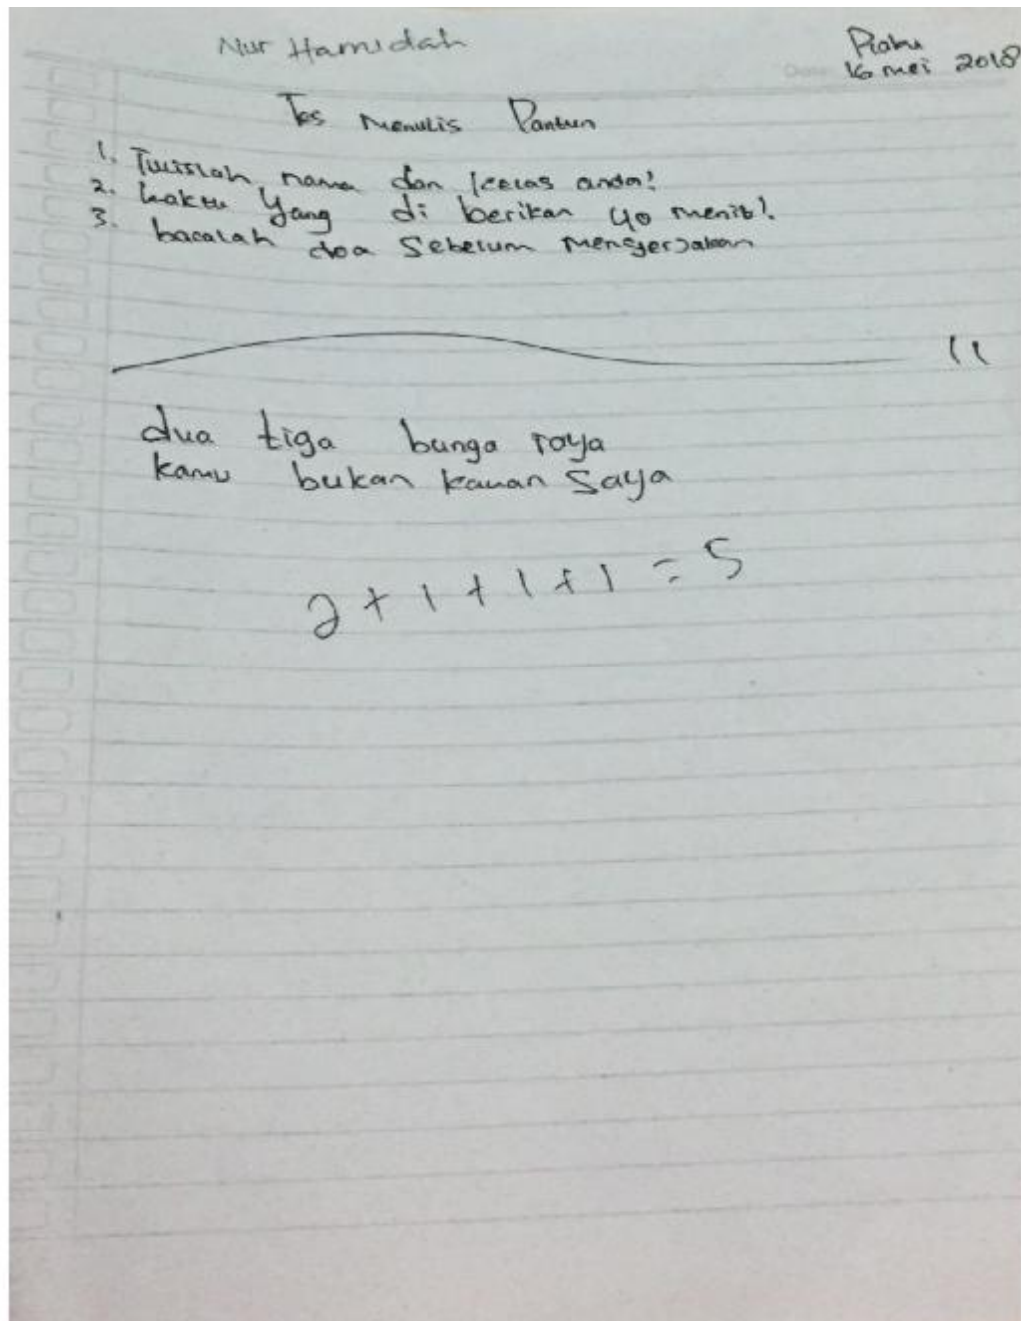 Nur Hamidah
Rabu
16 mei 2018
Tes Menulis Pantun
1. Tulislah nama dan kelas anda!
2. waktu yang di berikan 40 menit!
3. bacalah doa sebelum mengerjakan
dua tiga bunga raya
kamu bukan kawan saya
2 + 1 + 1 + 1 = 5